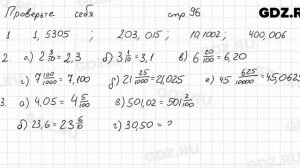 GDZ.RU
Проверьте себя стр 96
1. 1,5305 ; 203,015 ; 10,1002 ; 400,006
2. а) 2 3/10 = 2,3 б) 3 1/10 = 3,1 в) 6 20/100 = 6,20
г) 7 100/1000 = 7,100 д) 21 25/1000 = 21,025 е) 45 625/10000 = 45,0625
3. а) 4,05 = 4 5/100 в) 501,02 = 501 2/100
б) 23,6 = 23 6/10 г) 30,50 =
GDZ.RU